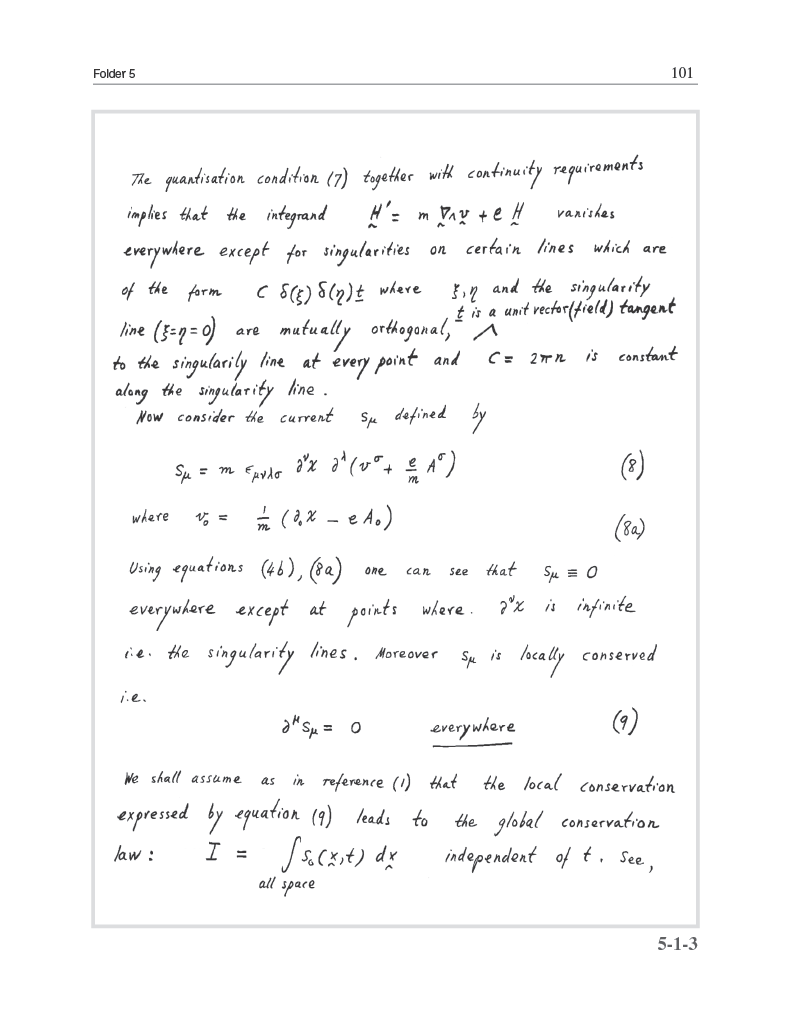 Folder 5 101
The quantisation condition (7) together with continuity requirements
implies that the integrand H̰' = m ∇̰∧v̰ + e H̰ vanishes
everywhere except for singularities on certain lines which are
of the form C δ(ξ) δ(η) t̲ where ξ, η and the singularity
line (ξ=η=0) are mutually orthogonal, ∧ t̲ is a unit vector(field) tangent
to the singularily line at every point and C = 2πn is constant
along the singularity line.
Now consider the current Sμ defined by
Sμ = m εμνλσ ∂^ν χ ∂^λ (v^σ + e/m A^σ) (8)
where v₀ = 1/m (∂₀χ − e A₀) (8a)
Using equations (4b), (8a) one can see that Sμ ≡ 0
everywhere except at points where. ∂^ν χ is infinite
i.e. the singularity lines. Moreover Sμ is locally conserved
i.e.
∂^μ Sμ = 0 everywhere (9)
We shall assume as in reference (1) that the local conservation
expressed by equation (9) leads to the global conservation
law: I = ∫ S₀(x̰,t) dx̰ independent of t. See,
all space
5-1-3